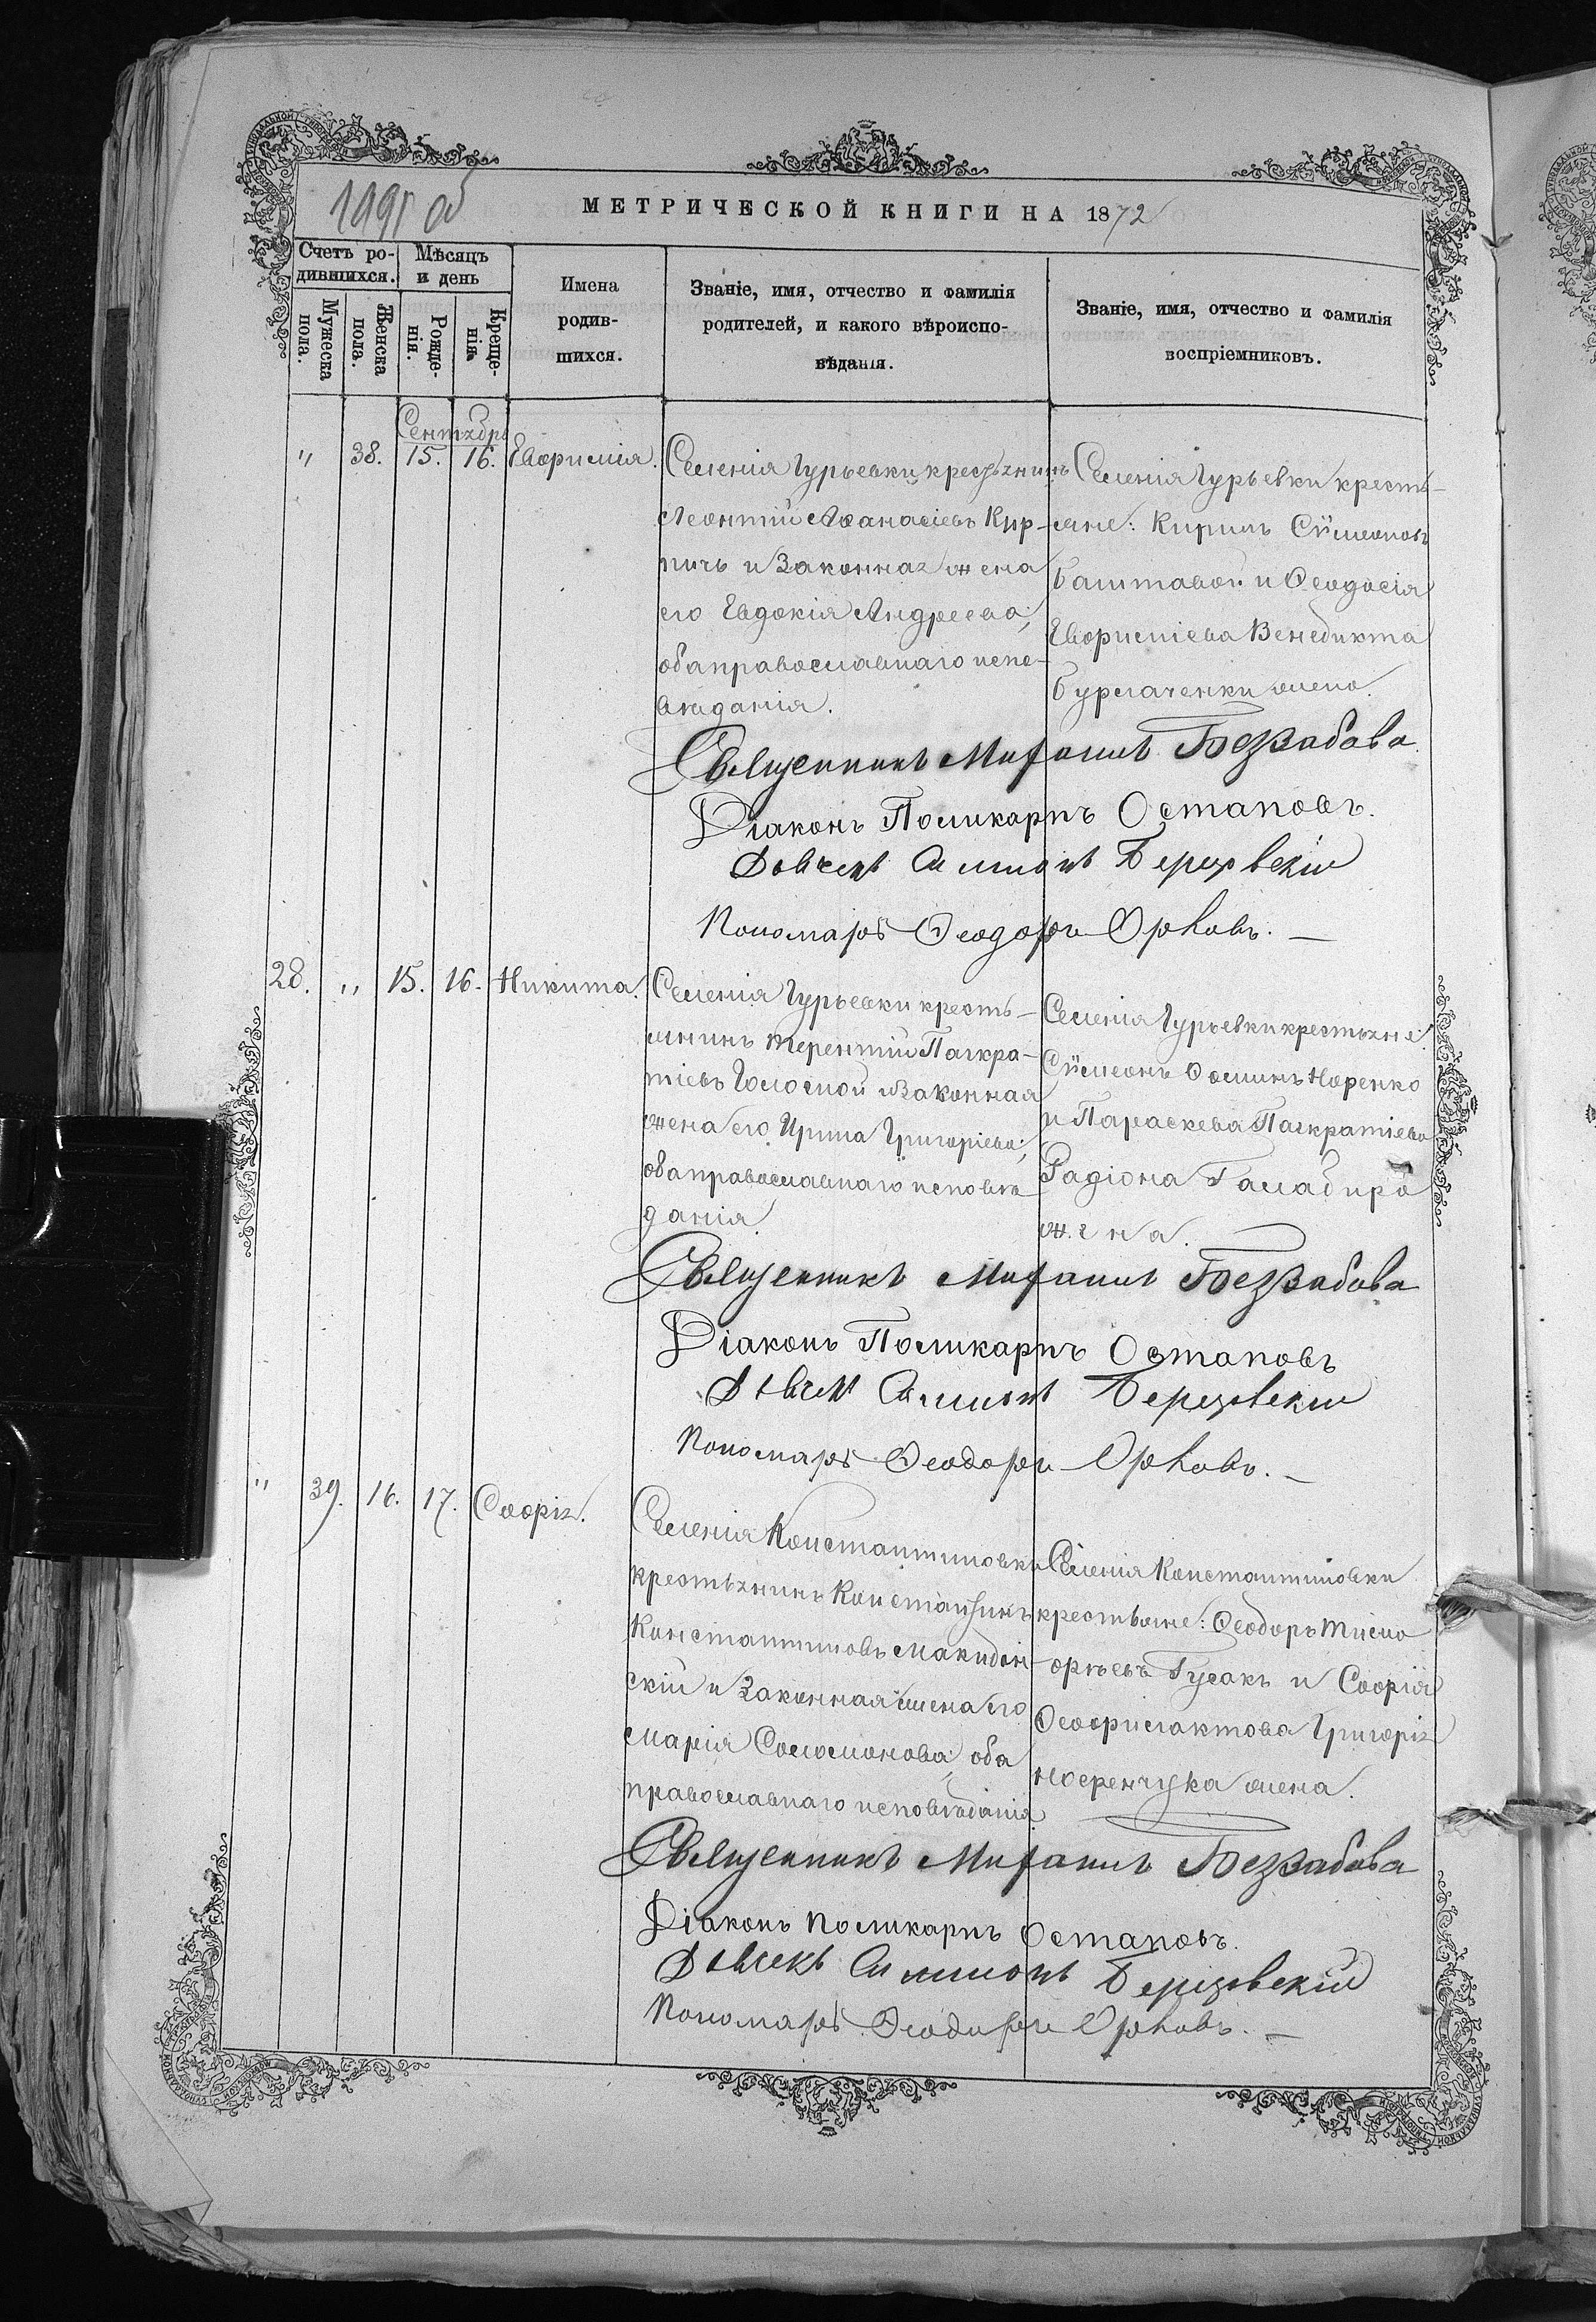 1991 об
МЕТРИЧЕСКОЙ КНИГИ НА 1872
Счетъ ро-
дившихся.
Мѣсяцъ
и день
Мужеска
пола.
Женска
пола.
Рожде-
нія.
Креще-
нія.
Имена
родив-
шихся.
Званіе, имя, отчество и фамилія
родителей, и какого вѣроиспо-
вѣданія.
Званіе, имя, отчество и фамилія
воспріемниковъ.
Сентябрь
" 38. 15. 16. Евфимія.
Селенія Гурьевки крестьянинъ
Леонтій Аѳанасіевъ Кир-
пичъ и законная жена
его Евдокія Андреева;
оба православнаго испо-
вѣданія.
Селенія Гурьевки кресть-
яне: Кирилъ Сѵмеоновъ
Баштавой и Ѳеодосія
Евфиміева Венедикта
Бурлаченки жена.
Священникъ Михаилъ Беззабава
Діаконъ Поликарпъ Остаповъ.
Дьячекъ Симеонъ Березовскій
Пономарь Ѳеодоръ Орловъ.
28. " 15. 16. Никита.
Селенія Гурьевки кресть-
янинъ Терентій Панкра-
тіевъ Голомой и законная
жена его Ирина Григоріева;
оба православнаго исповѣ
данія.
Селенія Гурьевки крестьяне:
Сѵмеонъ Ѳоминъ Норенко
и Параскева Панкратіева
Радіона Галабира
жена.
Священникъ Михаилъ Беззабава
Діаконъ Поликарпъ Остаповъ
Дьячекъ Симеонъ Березовскій
Пономарь Ѳеодоръ Орловъ.
" 39. 16. 17. Софія.
Селенія Константиновки
крестьянинъ Константинъ
Константиновъ Македон
скій и законная жена его
Марія Соломонова, оба
православнаго исповѣданія.
Селенія Константиновки
крестьяне: Ѳеодоръ Тимо
ѳѣевъ Гусакъ и Софія
Ѳеофилактова Григорія
жена.
Священникъ Михаилъ Беззабава
Діаконъ Поликарпъ Остаповъ.
Дьячекъ Симеонъ Березовскій
Пономарь Ѳеодоръ Орловъ.